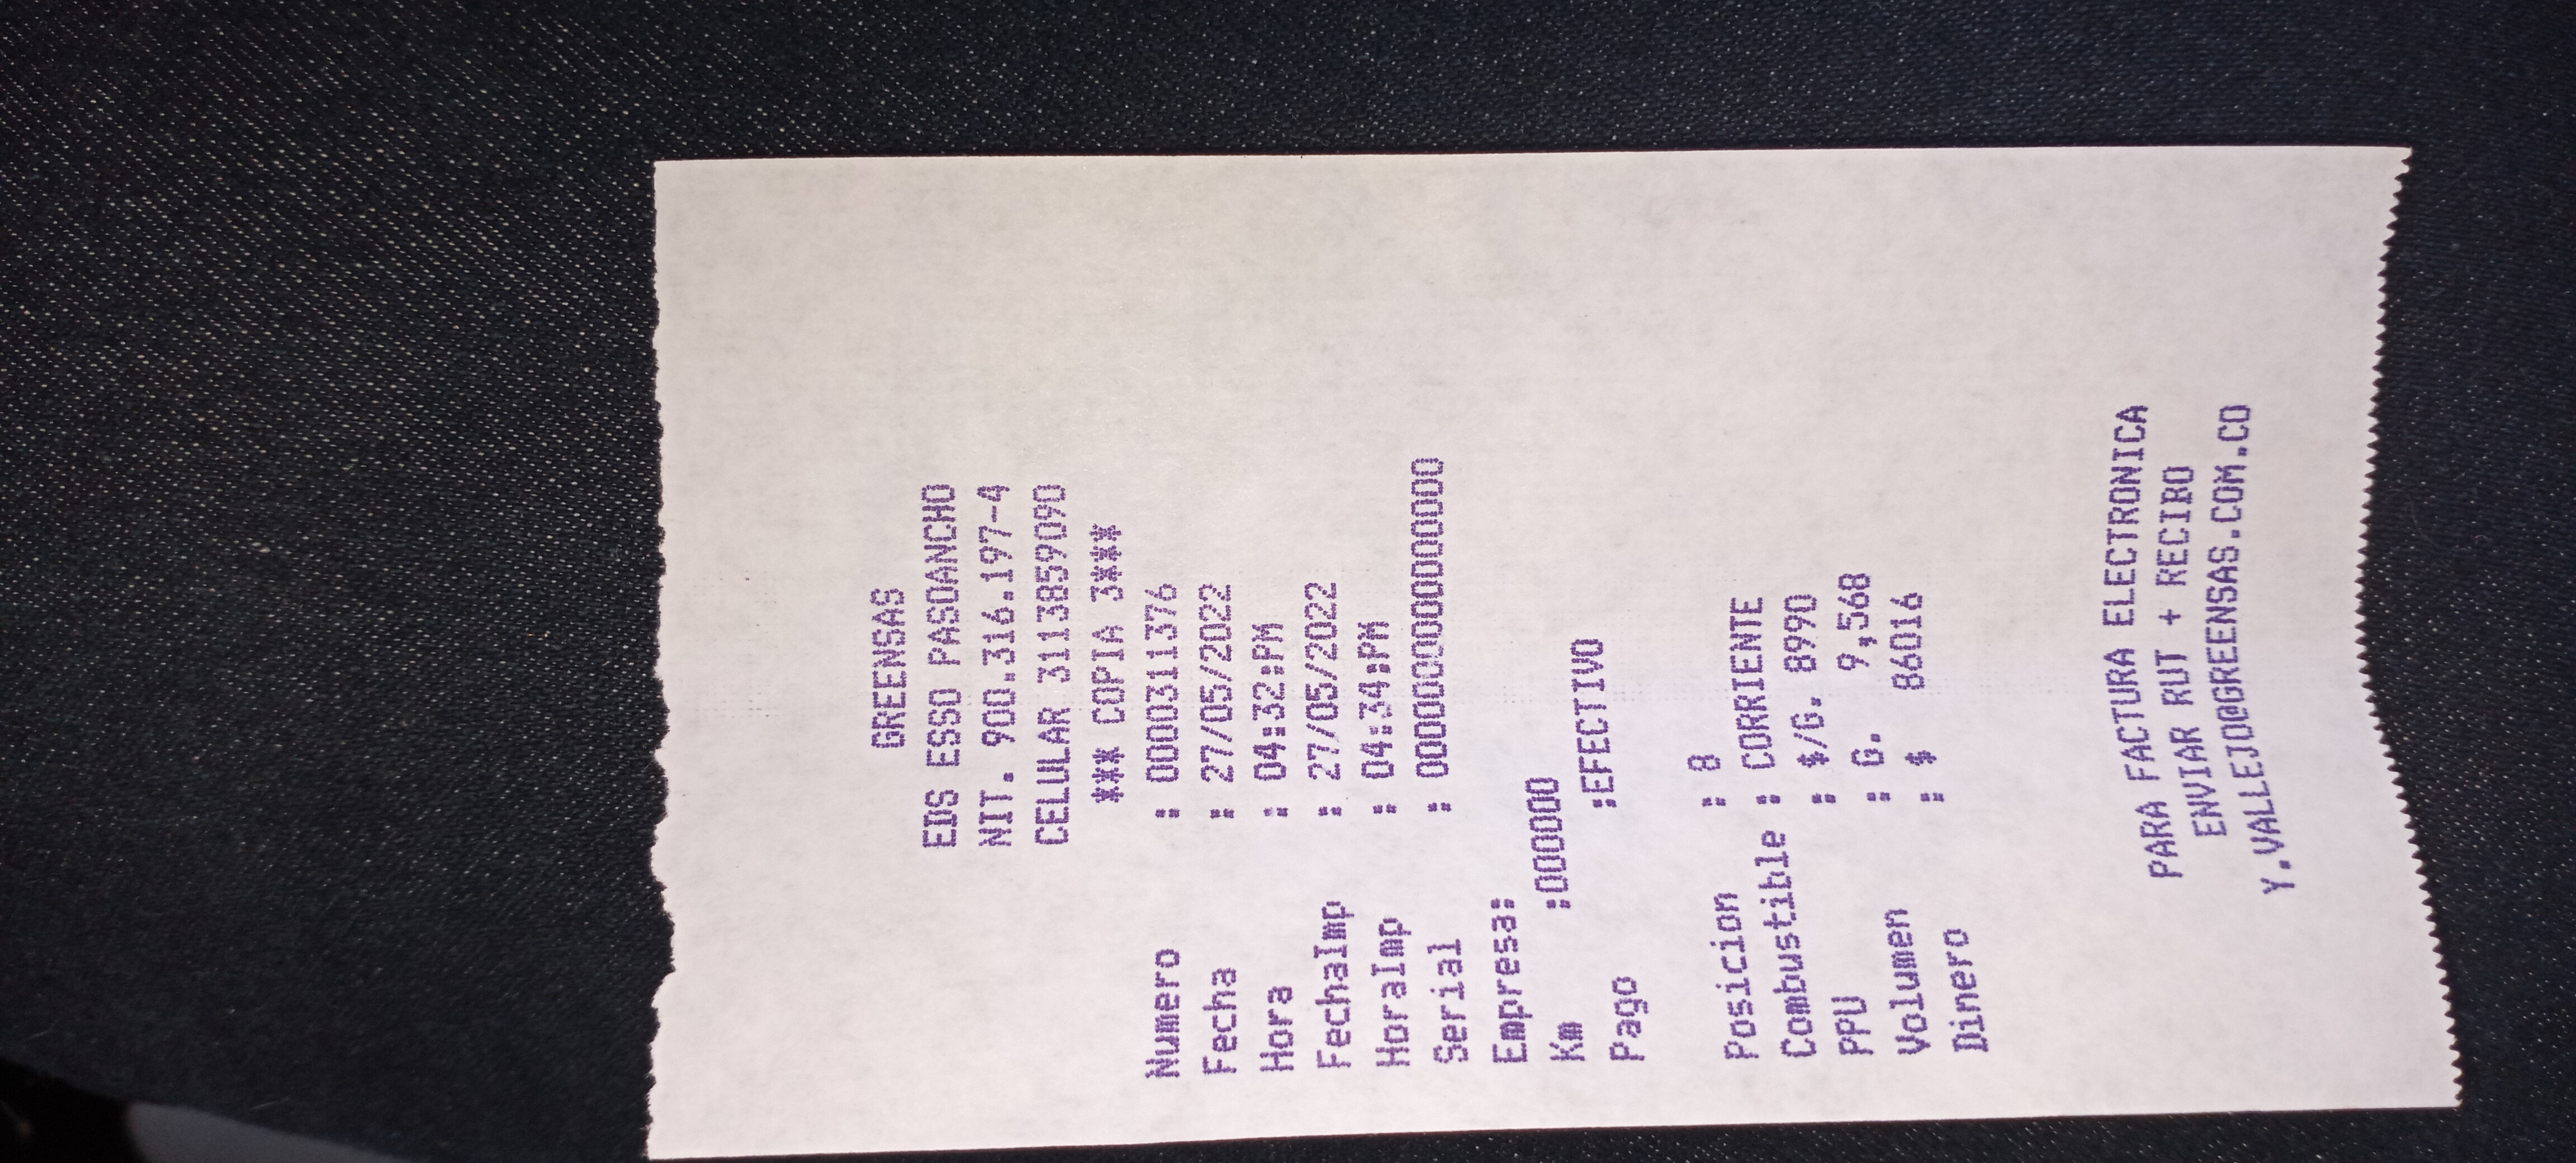 GREENSAS
EDS ESSO PASOANCHO
NIT. 900.316.197-4
CELULAR 3113859090
*** COPIA 3***
Numero : 0000311376
Fecha : 27/05/2022
Hora : 04:32:PM
FechaImp : 27/05/2022
HoraImp : 04:34:PM
Serial : 0000000000000000
Empresa:
Km :000000
Pago :EFECTIVO
Posicion : 8
Combustible : CORRIENTE
PPU : $/G. 8990
Volumen : G. 9,568
Dinero : $ 86016
PARA FACTURA ELECTRONICA
ENVIAR RUT + RECIBO
Y.VALLEJO@GREENSAS.COM.CO